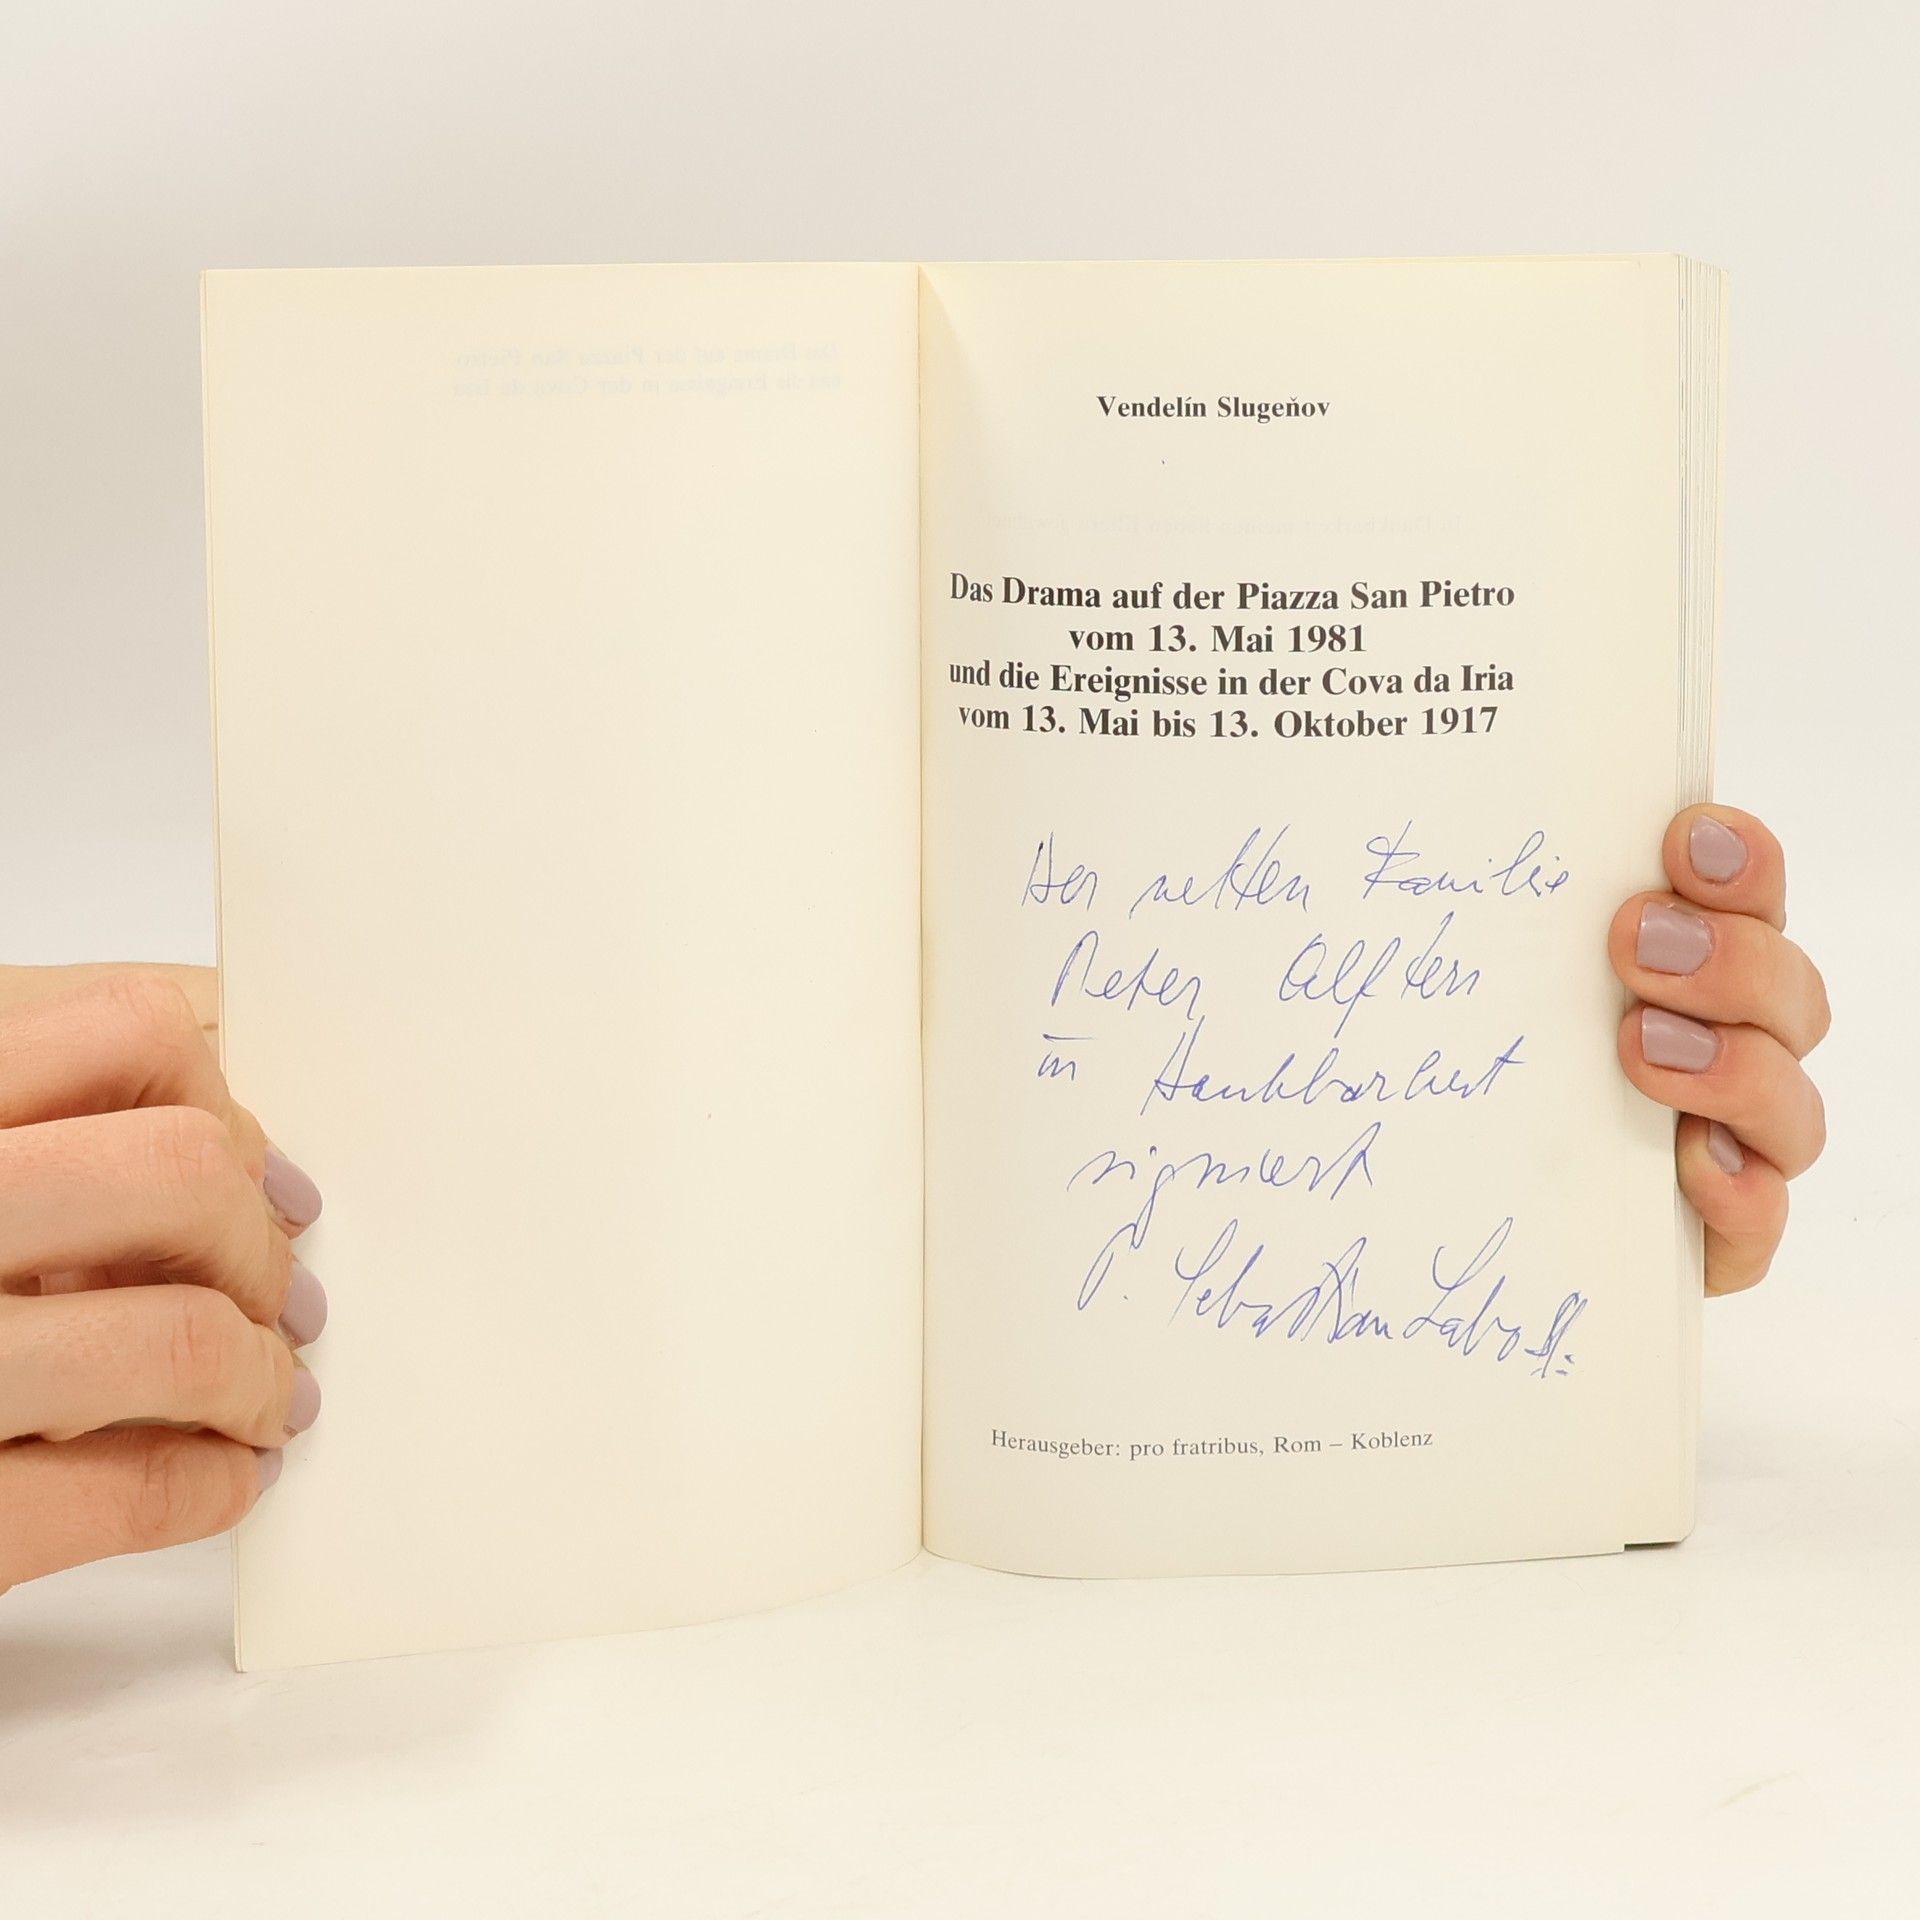 Vendelín Slugeňov
Das Drama auf der Piazza San Pietro
vom 13. Mai 1981
und die Ereignisse in der Cova da Iria
vom 13. Mai bis 13. Oktober 1917
Der netten Familie
Peter Alften
in Dankbarkeit
signiert
P. Sebastian Labo
Herausgeber: pro fratribus, Rom – Koblenz